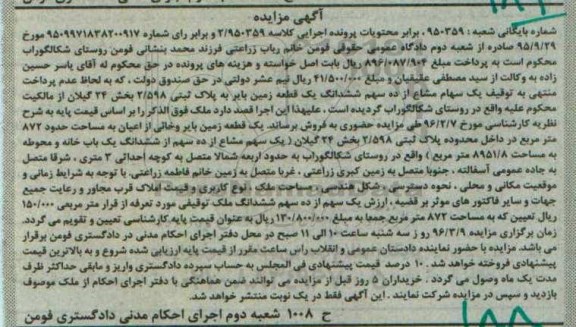 آگهی مزایده
شماره بایگانی شعبه: ۹۵۰۳۵۹ ، برابر محتویات پرونده اجرایی کلاسه ۲/۹۵۰۳۵۹ و برابر رای شماره ۹۵۰۹۹۷۱۸۳۸۲۰۰۹۱۷ مورخ
۹۵/۹/۲۹ صادره از شعبه دوم دادگاه عمومی حقوقی فومن خانم رباب زراعتی فرزند محمد بنشانی فومن روستای شکالگوراب
محکوم است به پرداخت مبلغ ۸۹۶/۰۸۷/۹۰۴ ریال بابت اصل خواسته و هزینه های پرونده در حق محکوم له آقای یاسر حسین
زاده به وکالت از سید مصطفی عقیقیان و مبلغ ۴۱/۵۰۰/۰۰۰ ریال نیم عشر دولتی در حق صندوق دولت ، که به لحاظ عدم پرداخت
منتهی به توقیف یک سهام مشاع از ده سهم ششدانگ یک قطعه زمین بایر به پلاک ثبتی ۲/۵۹۸ بخش ۲۴ گیلان از مالکیت
محکوم علیه واقع در روستای شکالگوراب گردیده است . علیهذا این اجرا قصد دارد ملک فوق الذکر را بر اساس قیمت پایه به شرح
نظریه کارشناسی مورخ ۹۶/۲/۷ طی مزایده حضوری به فروش برساند. یک قطعه زمین بایر وخاتی از اعیان به مساحت حدود ۸۷۲
متر مربع در داخل محدوده پلاک ثبتی ۲/۵۹۸ بخش ۲۴ گیلان ( یک سهم مشاع از ده سهم از ششدانگ یک باب خانه و محوطه
به مساحت ۸۹۵۱/۸ متر مربع ) واقع در روستای شکالگوراب به حدود اربعه شمالا متصل به کوچه احداثی ۳ متری ، شرقا متصل
به جاده عمومی آسفالته ، جنوبا متصل به زمین کبری زراعتی ، غربا متصل به زمین خانم فاطمه زراعتی. با توجه به شرایط زمانی و
موقعیت مکانی و محلی ، نحوه دسترسی ، شکل هندسی ، مساحت ملک ، نوع کاربری و قیمت املاک قرب مجاور و رعایت جمیع
جهات و سایر فاکتور های موثر بر قضیه ، ارزش یک سهم از ده سهم ششدانگ ملک توقیفی مورد تعرفه از قرار متر مربعی ۱۵۰/۰۰۰
ریال تعیین که به مساحت ۸۷۲ متر مربع جمعا به مبلغ ۱۳۰/۸۰۰/۰۰۰ ریال به عنوان قیمت پایه کارشناسی تعیین و تقویم می گردد.
زمان برگزاری مزایده ۹۶/۳/۹ روز سه شنبه ساعت ۱۰ الی ۱۱ صبح در محل دفتر اجرای احکام مدنی در دادگستری فومن برقرار
می باشد. مزایده با حضور نماینده دادستان عمومی و انقلاب راس ساعت مقرر از قیمت پایه ارزیابی شده شروع و به بالاترین قیمت
پیشنهادی فروخته خواهد شد . ۱۰ درصد قیمت پیشنهادی فی المجلس به حساب سپرده دادگستری واریز و مابقی حداکثر ظرف
مدت یک ماه وصول می گردد . خریداران ۵ روز قبل از مزایده می توانند ضمن هماهنگی با دفتر اجرای احکام از ملک موصوف
بازدید و سپس در مزایده شرکت نمایند . این آگهی فقط در یک نوبت منتشر خواهد شد.
ح ۱۰۰۸ شعبه دوم اجرای احکام مدنی دادگستری فومن